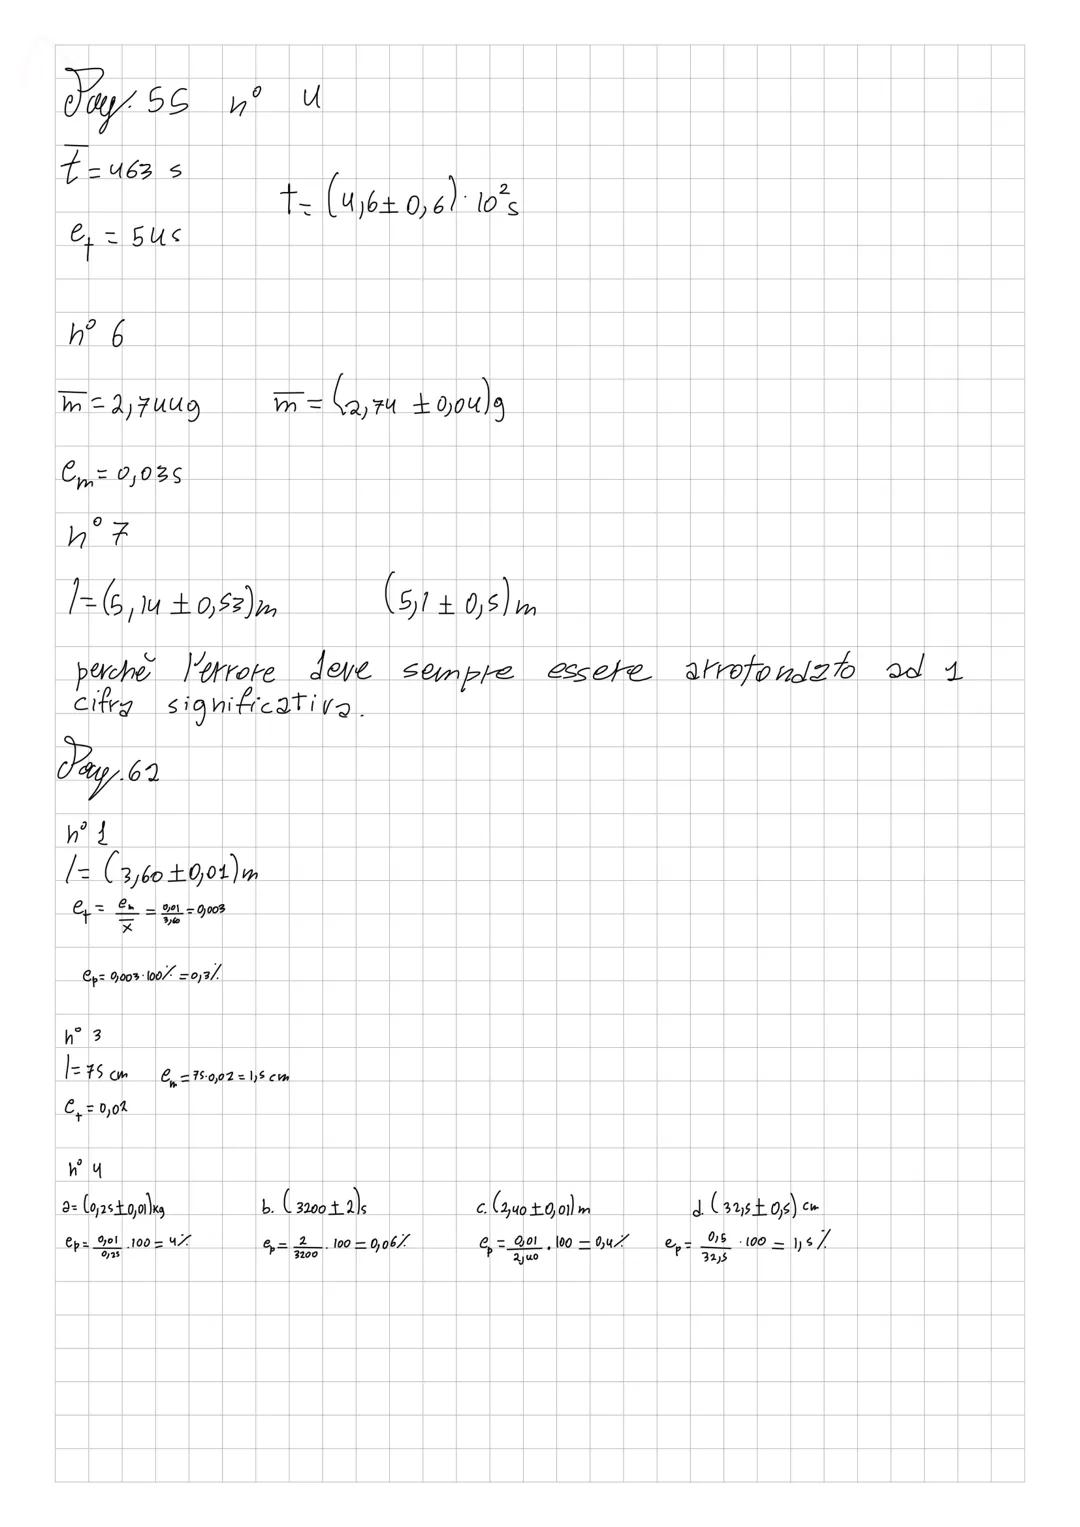 Pag. 55 n° 4
t̅ = 463 s
t = (4,6 ± 0,6) · 10² s
e_t = 54 s
n° 6
m̅ = 2,744 g m̅ = (2,74 ± 0,04) g
e_m = 0,035
n° 7
l = (5,14 ± 0,53) m (5,1 ± 0,5) m
perchè l'errore deve sempre essere arrotondato ad 1
cifra significativa.
Pag. 62
n° 1
l = (3,60 ± 0,01) m
e_t = e_m / x̅ = 0,01 / 3,60 = 0,003
e_p = 0,003 · 100% = 0,3%
n° 3
l = 75 cm e_m = 75 · 0,02 = 1,5 cm
e_t = 0,02
n° 4
a = (0,25 ± 0,01) kg b. (3200 ± 2) s c. (2,40 ± 0,01) m d. (32,5 ± 0,5) cm
e_p = 0,01 / 0,25 · 100 = 4% e_p = 2 / 3200 · 100 = 0,06% e_p = 0,01 / 2,40 · 100 = 0,4% e_p = 0,5 / 32,5 · 100 = 1,5%